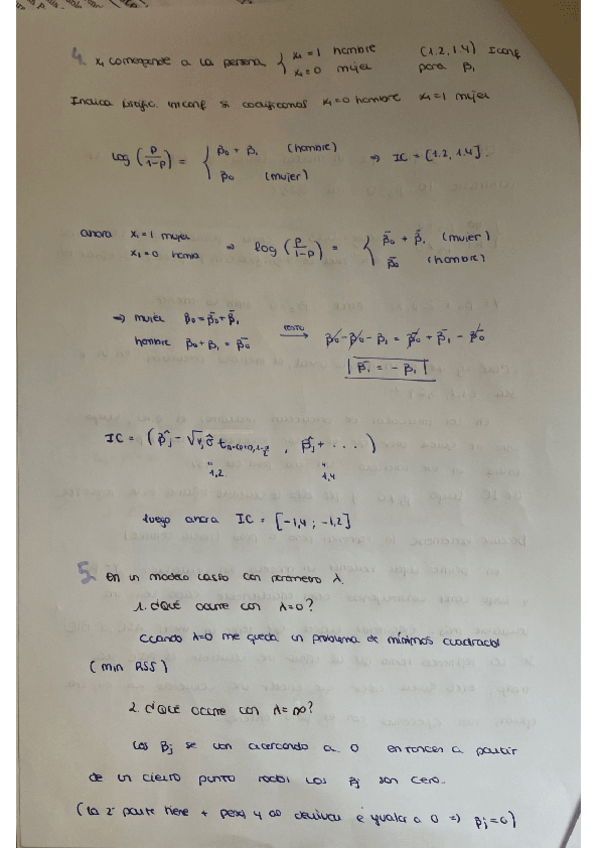 4. x₁ corresponde a la persona { x₁ = 1 hombre (1.2, 1.4) I conf
x₁ = 0 mujer para β₁
Indica conf si codificamos x₁ = 0 hombre x₁ = 1 mujer
log (p/1-p) = { β₀ + β₁ (hombre) ⇒ IC = [1.2, 1.4].
β₀ (mujer)
ahora x₁ = 1 mujer ⇒ log (p/1-p) = { β̄₀ + β̄₁ (mujer)
x₁ = 0 β̄₀ (hombre)
⇒ mujer β₀ = β̄₀ + β̄₁
hombre β₀ + β₁ = β̄₀ resto → β₀ - β₀ - β₁ = β̄₀ + β̄₁ - β̄₀
β̄₁ = - β₁
IC = ( β̂j - , β̂j + ... )
" 1,2 " 1,4
luego ahora IC = [-1,4 ; -1,2]
5. en un modelo Lasso con parametro λ.
1. ¿Qué ocurre con λ=0?
Cuando λ=0 me queda un problema de mínimos cuadrados
(min RSS)
2. ¿Qué ocurre con λ=∞?
Los βj se van acercando a 0 entonces a partir
de un cierto punto todos los βj son cero.
(la 2ª parte tiene + peso y al derivar e igualar a 0 ⇒ βj=0)